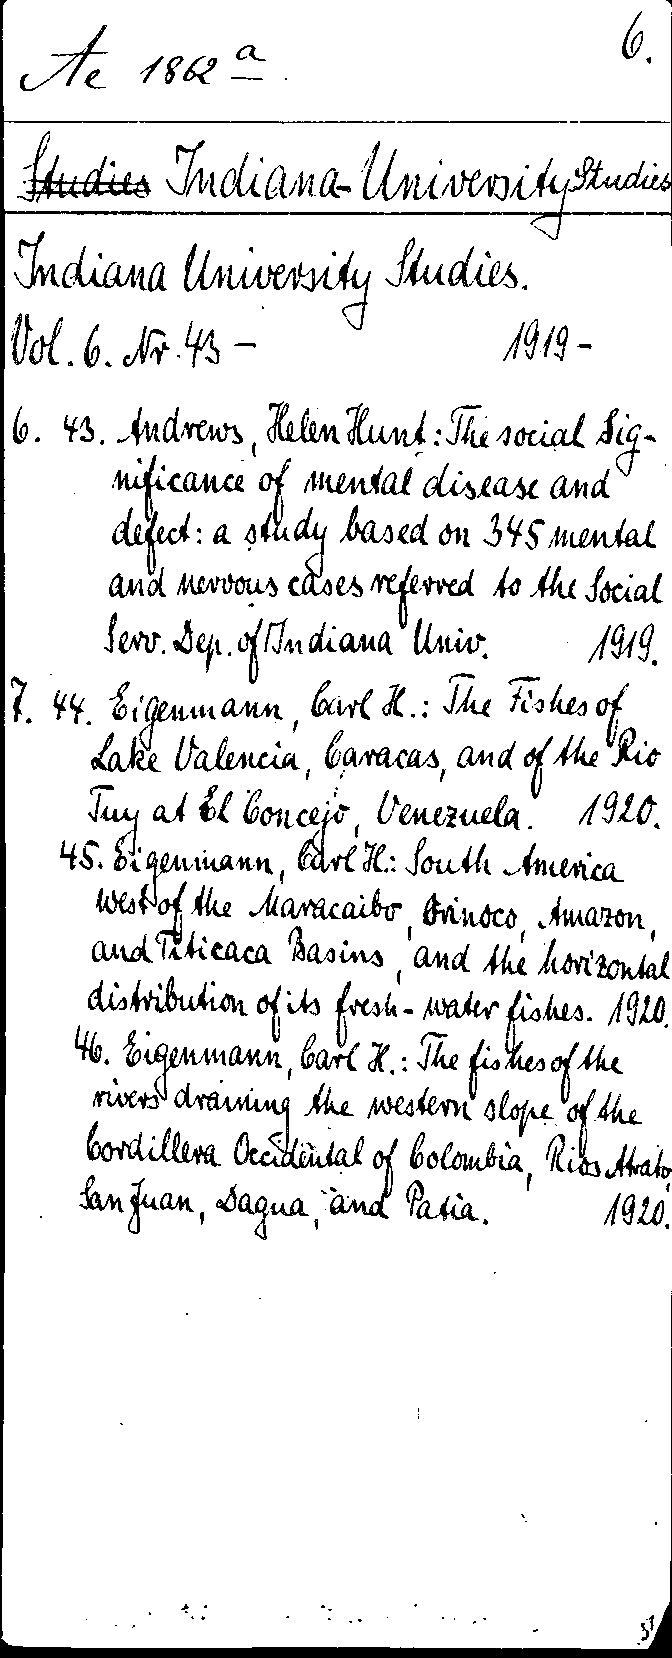 6.
Ae 1862 a
Studies Indiana-University Studies
Indiana University Studies.
Vol. 6. Nr. 43 – 1919 –
6. 43. Andrews, Helen Hunt: The social Sig-
nificance of mental disease and
defect: a study based on 345 mental
and nervous cases referred to the Social
Serv. Dep. of Indiana Univ. 1919.
7. 44. Eigenmann, Carl H.: The Fishes of
Lake Valencia, Caracas, and of the Rio
Tuy at El Concejo, Venezuela. 1920.
45. Eigenmann, Carl H.: South America
west of the Maracaibo, Orinoco, Amazon,
and Titicaca Basins, and the horizontal
distribution of its fresh-water fishes. 1920.
46. Eigenmann, Carl H.: The fishes of the
rivers draining the western slope of the
Cordillera Occidental of Colombia, Rios Atrato,
San Juan, Dagua, and Patia. 1920.